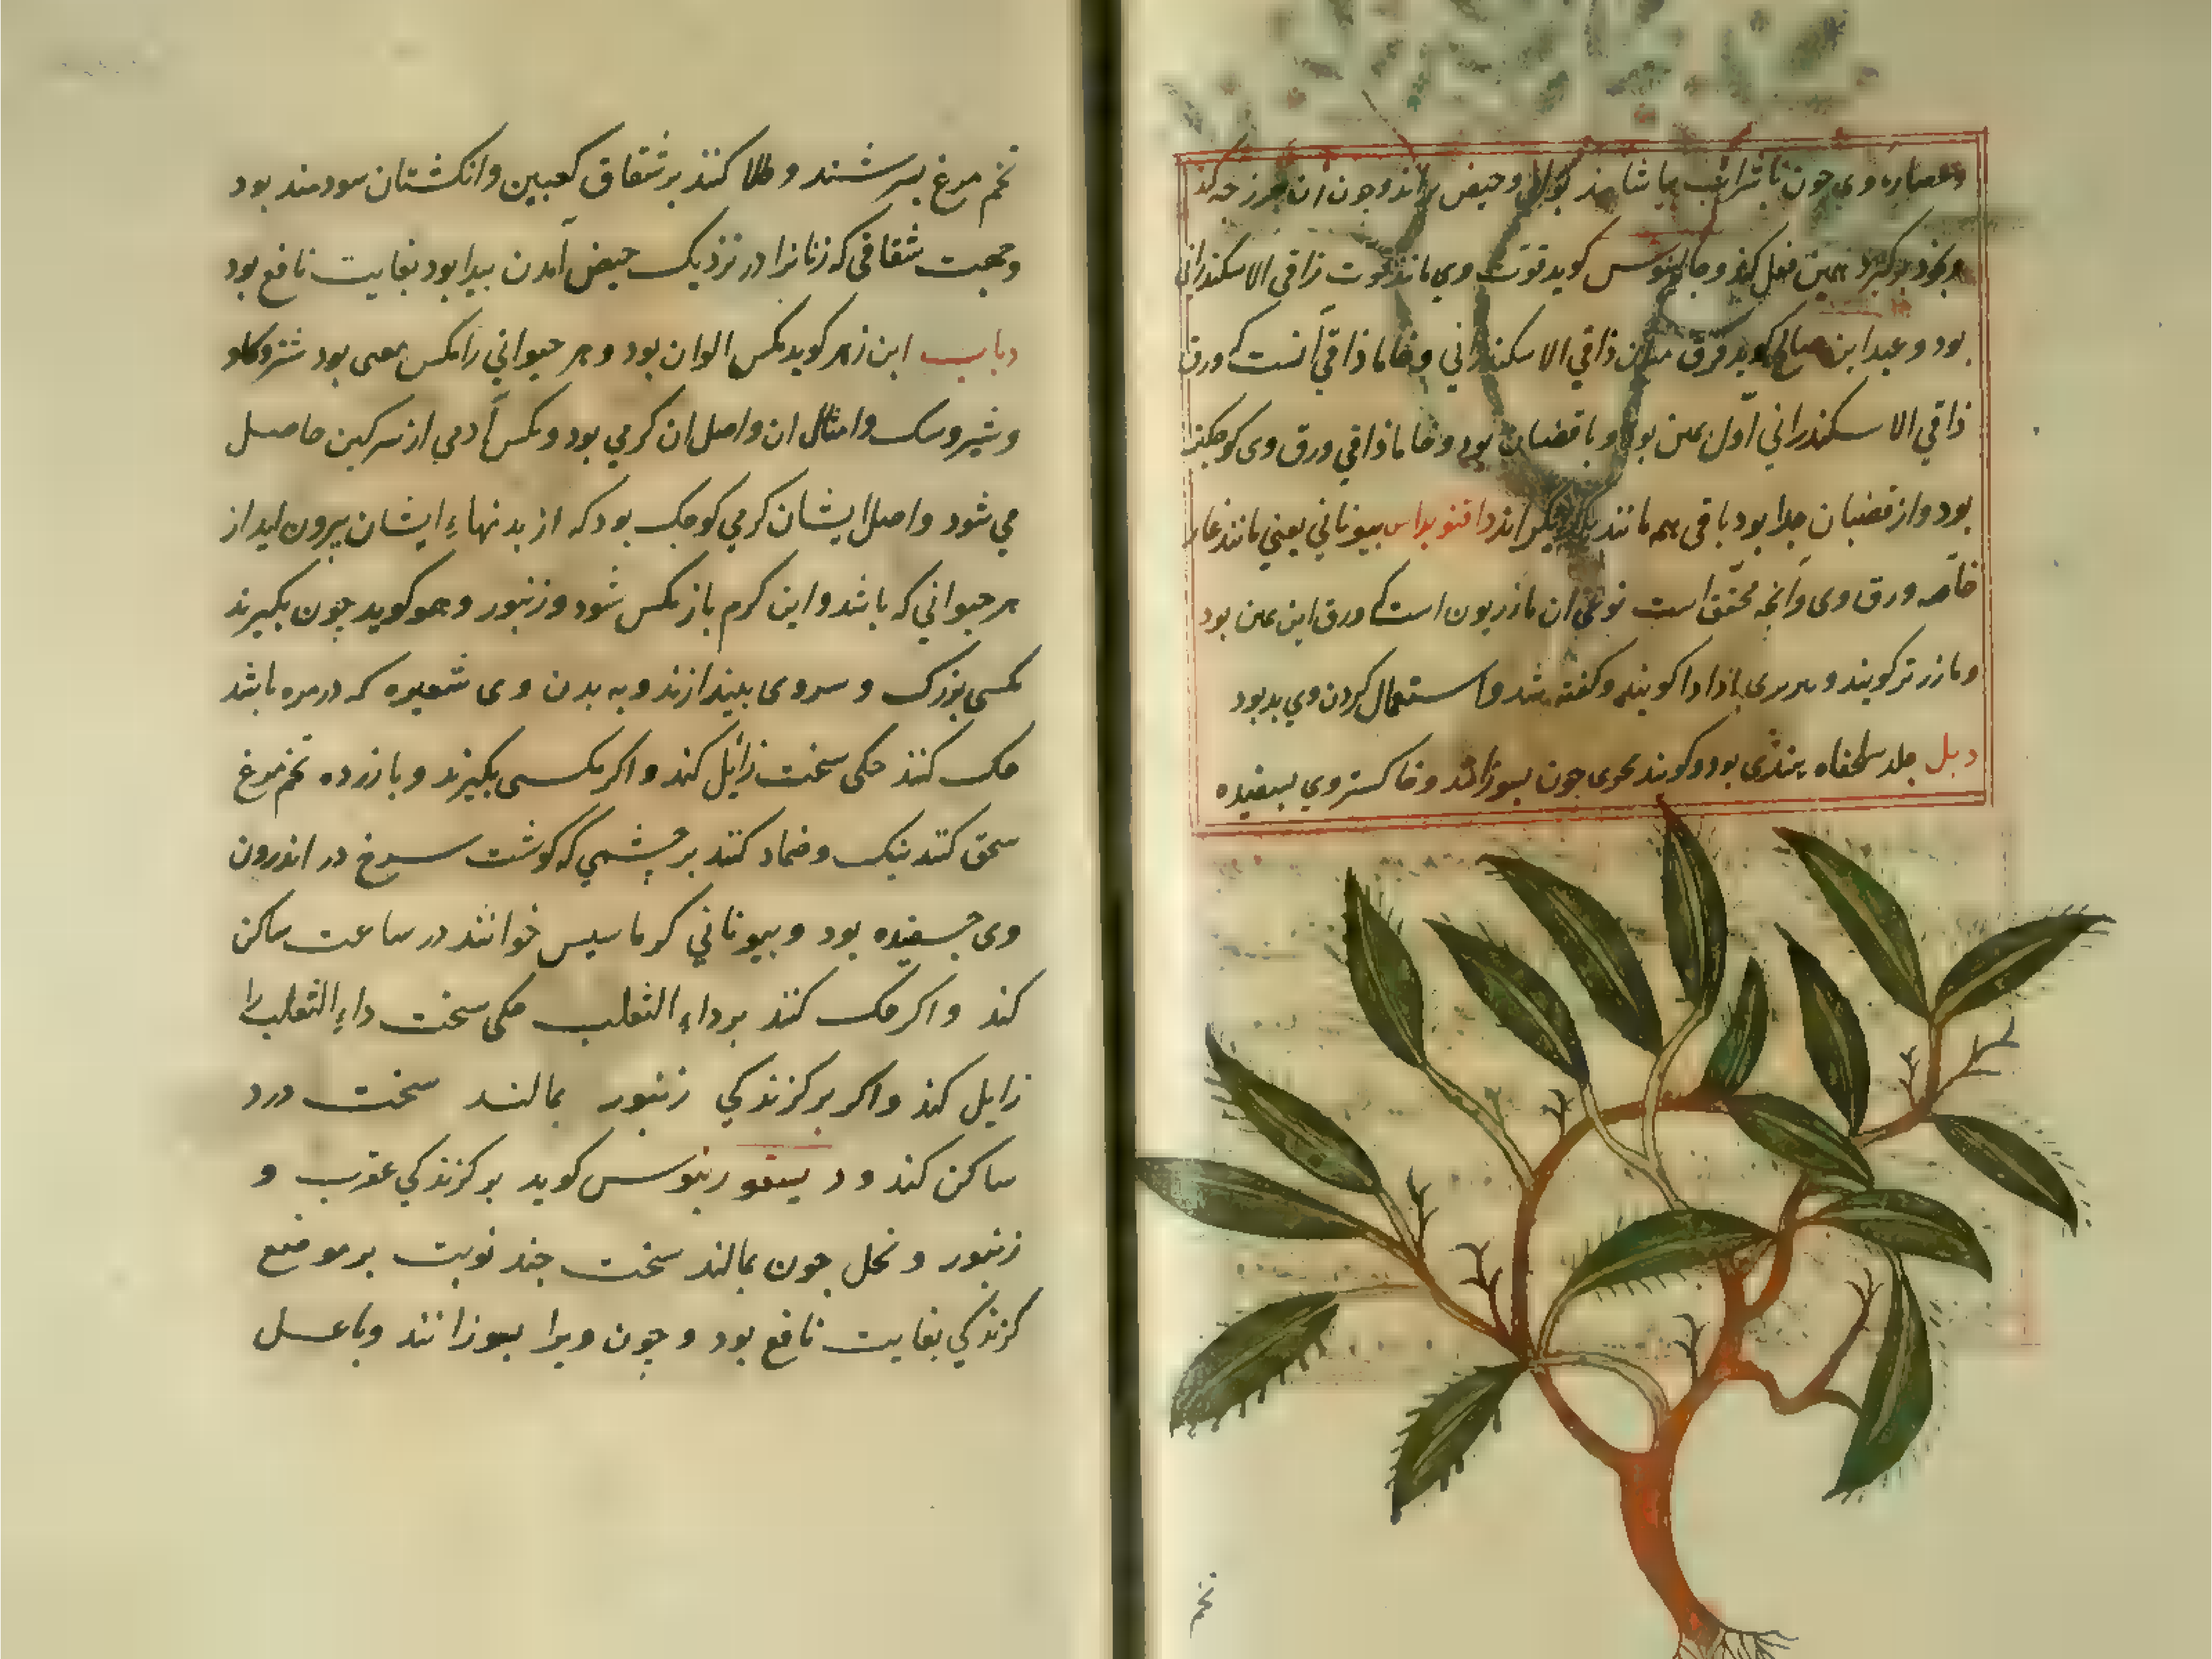 وعصاره وی چون با شراب بیاشامند بول و حیض براند و چون ان فرزجه کند
بخود برکیرد همین فعل کند و جالینوس کوید قوت وی مانند قوت ذاقی الاسکندرانی
بود و عبد ابن صالح کوید فرق میان ذاقي الاسکندراني و خاماذاقي آنست که ورق
ذاقي الاسکندراني اول پهن بود و با قضبان بود و خاماذاقي ورق وی کوچکتر
بود و از قضبان جدا بود باقی همه مانند یکدیکراند دافنویداس بیوناني یعني مانند غار
خاصه ورق وی وانچه محقق است نوعی از مازریون است که ورق این پهن بود
و مازر ترکویند و بربری اداداکویند و کفته شد و استعمال کردن وي بد بود
دبل جلد سلحفاه هندی بود و کویند بحری چون بسوزانند و خاکستر وي بسفیده
تخم
تخم مرغ بسرشند و طلا کنند بر شقاق کعبین و انکشتان سودمند بود
و جهت شقاقی که زنانرا در نزدیک حیض آمدن پیدا بود بغایت نافع بود
دباب ابن زهر کوید مکس الوان بود و هر حیواني را مکس معین بود شتر و کاو
و شیر و سک و امثال ان و اصل ان کرمي بود و مکس آدمي از سرکین حاصل
مي شود و اصل ایشان کرمي کوچک بود که از بدنهاء ایشان بیرون اید از
هر حیواني که باشد و این کرم باز مکس شود و زنبور و هموکوید چون بکیرند
مکسی بزرک و سر وی بیندازند و به بدن وی شعیره که در مره باشد
حک کنند حکی سخت زایل کند و اکر مکسی بکیرند و با زرده تخم مرغ
سحق کنند نیک و ضماد کنند بر چشمي که گوشت سرخ در اندرون
وی چسفیده بود و بیوناني کرماسیس خوانند در ساعت ساکن
کند و اکر حک کنند بر داء الثعلب حکی سخت داء الثعلب را
زایل کند و اکر بر کزندکي زنبور بمالند سخت درد
ساکن کند و دیسقوریدوس کوید بر کزندکي عقرب و
زنبور و نحل چون بمالند سخت چند نوبت بر موضع
کزندکي بغایت نافع بود و چون ویرا بسوزانند و با عسل